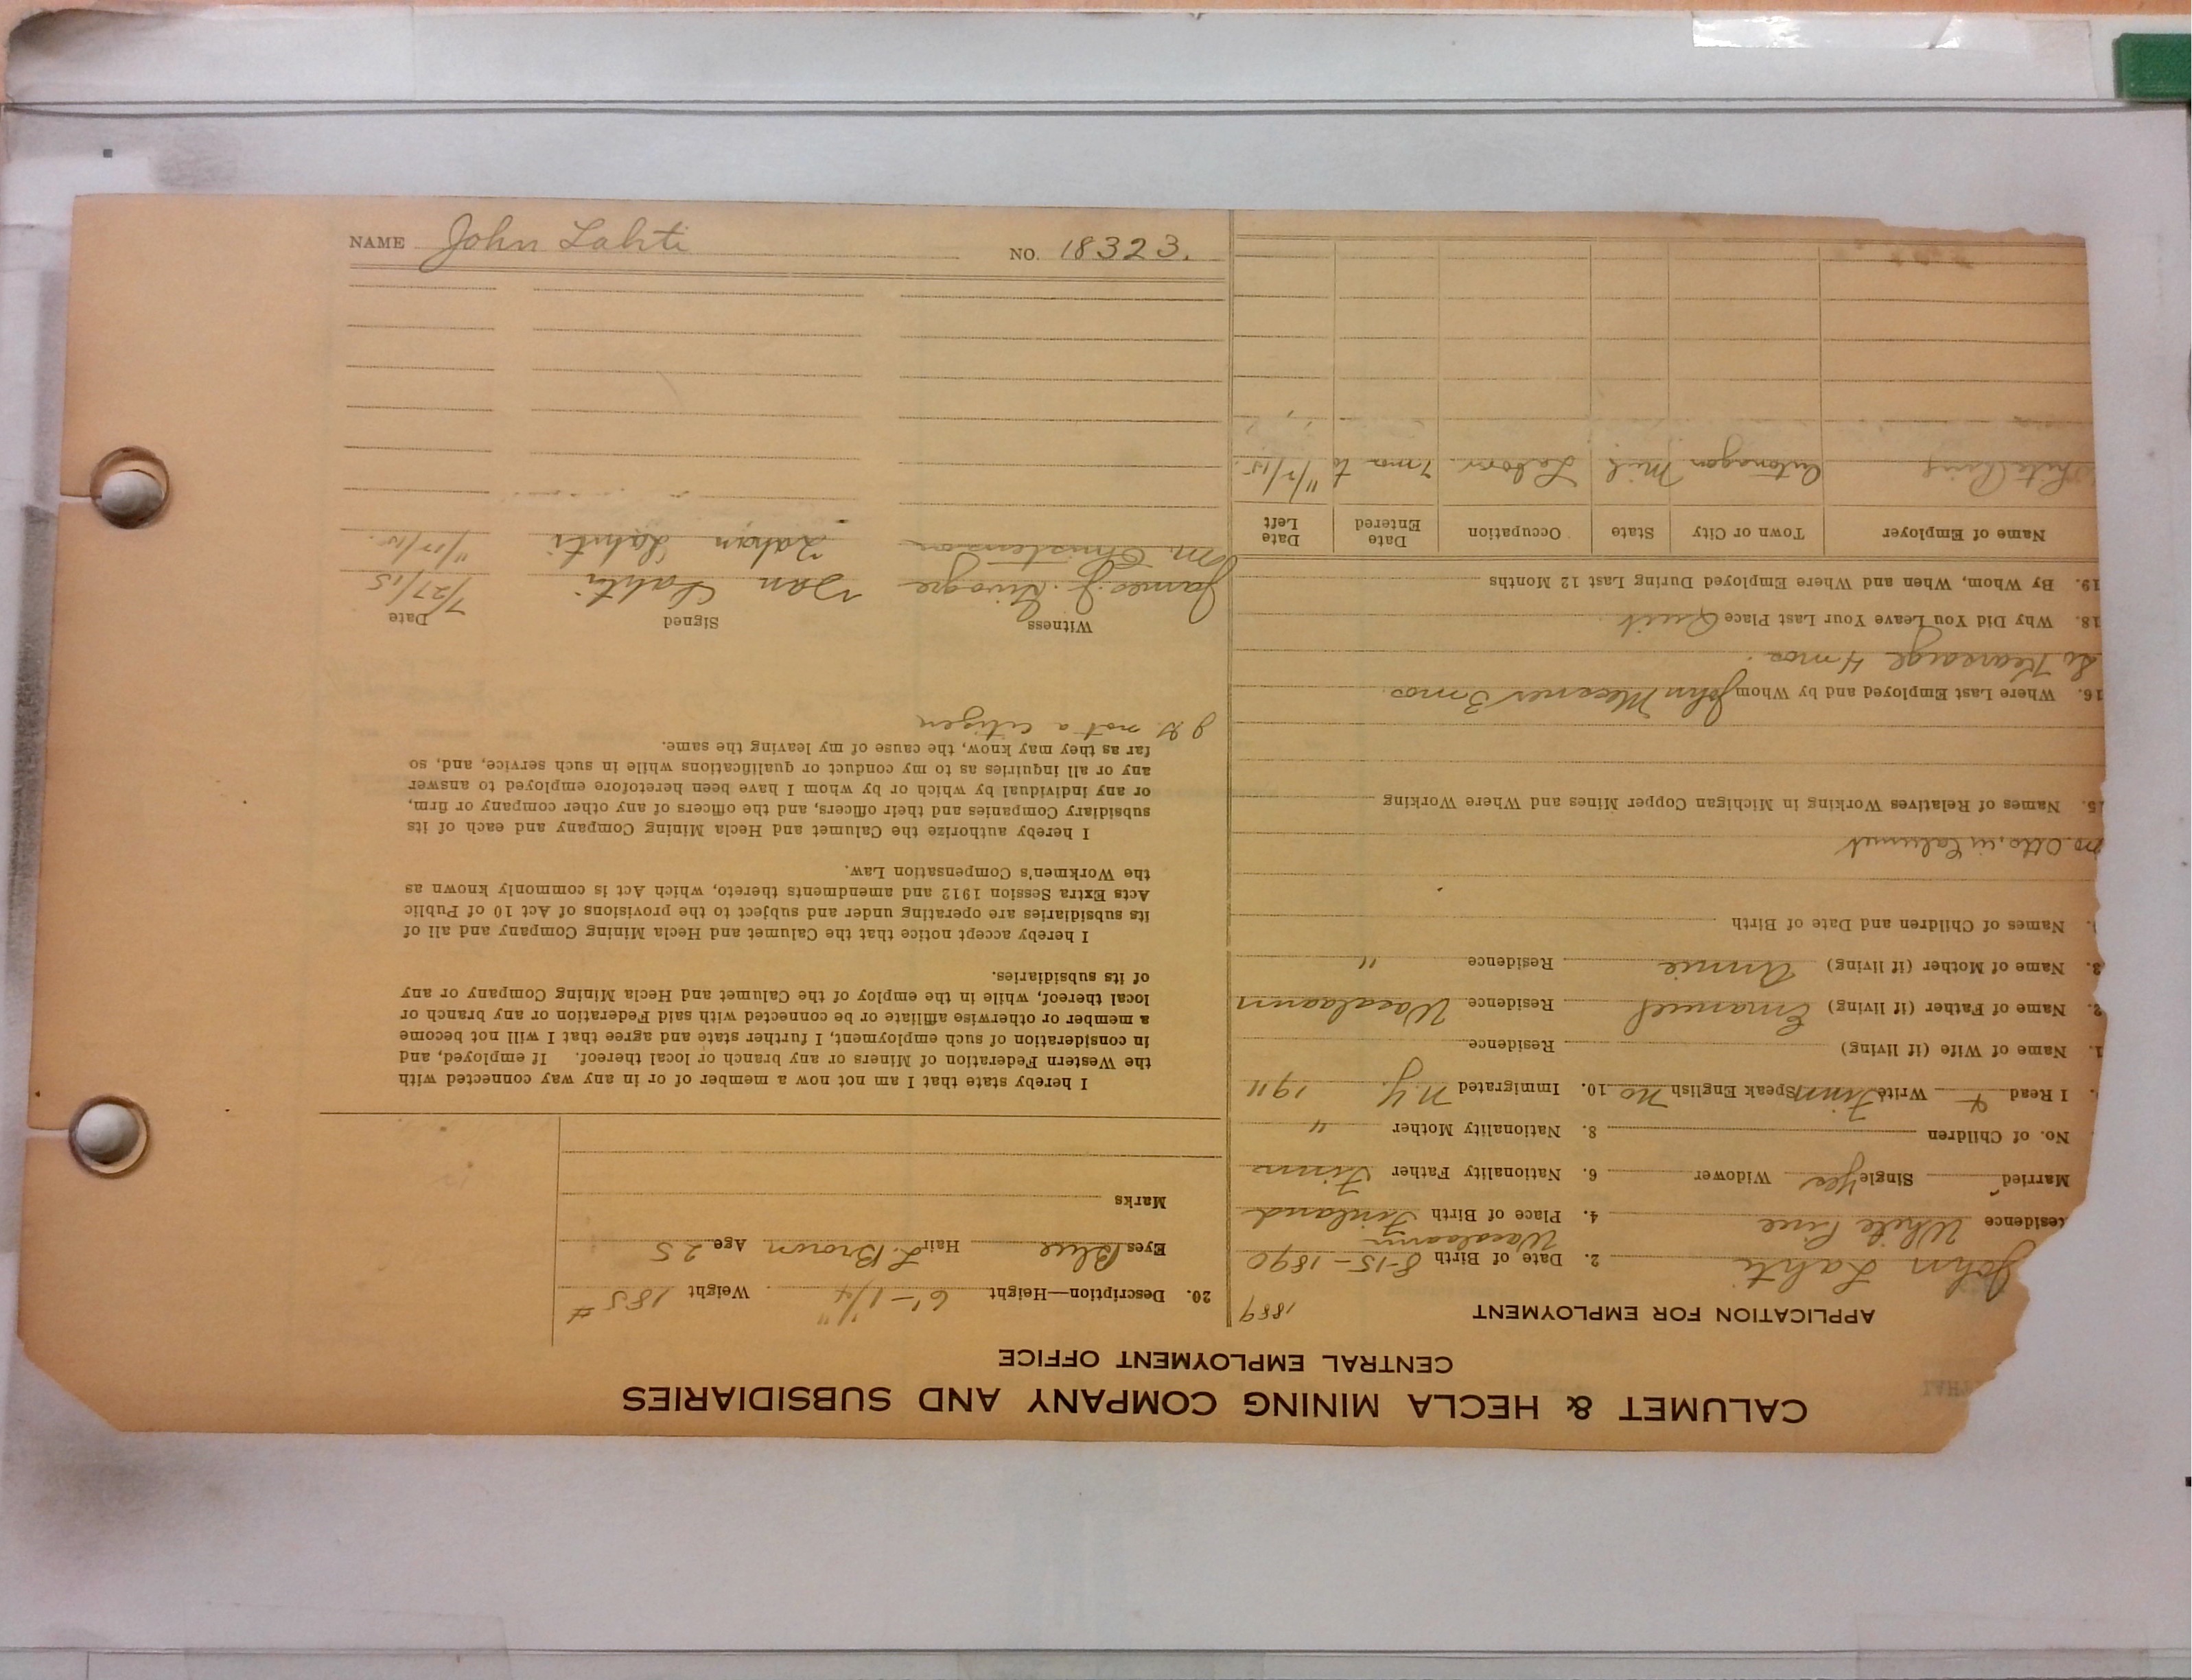 NAME John Lahti NO. 18323.
CALUMET & HECLA MINING COMPANY AND SUBSIDIARIES
CENTRAL EMPLOYMENT OFFICE
APPLICATION FOR EMPLOYMENT 1889
John Lahti 2. Date of Birth 8-15-1890
esidence White Pine 4. Place of Birth Finland
Married Single Yes Widower 6. Nationality Father Finn
No. of Children 8. Nationality Mother "
I Read & Write Finn Speak English no 10. Immigrated N.Y. 1911
1. Name of Wife (if living) Residence
2. Name of Father (if living) Emanuel Residence
3. Name of Mother (if living) Annie Residence "
Names of Children and Date of Birth
Otto, in Calumet
5. Names of Relatives Working in Michigan Copper Mines and Where Working
16. Where Last Employed and by Whom John 3 mos.
So Kearsarge 4 mos.
18. Why Did You Leave Your Last Place Quit
19. By Whom, When and Where Employed During Last 12 Months
Name of Employer Town or City State Occupation Date Entered Date Left
White Pine Ontonagon Mich Labor. 7 mo to
20. Description—Height 6'-1¼" Weight 185 #
Eyes Blue Hair L. Brown Age 25
Marks
I hereby state that I am not now a member of or in any way connected with
the Western Federation of Miners or any branch or local thereof. If employed, and
in consideration of such employment, I further state and agree that I will not become
a member or otherwise affiliate or be connected with said Federation or any branch or
local thereof, while in the employ of the Calumet and Hecla Mining Company or any
of its subsidiaries.
I hereby accept notice that the Calumet and Hecla Mining Company and all of
its subsidiaries are operating under and subject to the provisions of Act 10 of Public
Acts Extra Session 1912 and amendments thereto, which Act is commonly known as
the Workmen's Compensation Law.
I hereby authorize the Calumet and Hecla Mining Company and each of its
subsidiary Companies and their officers, and the officers of any other company or firm,
or any individual by which or by whom I have been heretofore employed to answer
any or all inquiries as to my conduct or qualifications while in such service, and, so
far as they may know, the cause of my leaving the same.
not a citizen
Witness Signed Date
James J. Lahti 7/27/15
M. Christenson Lahti